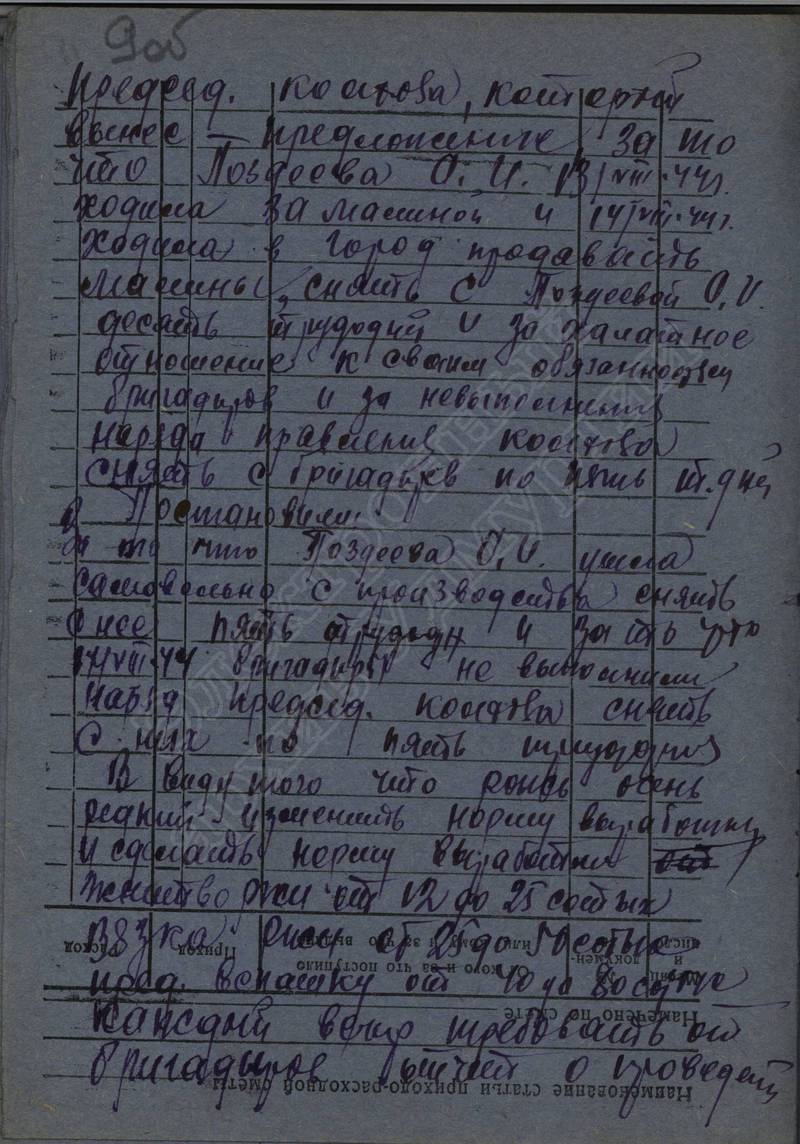 9об
Председ. колхоза, который
вынес – предложение за то
что Поздеева О. И. 13/VIII-44г.
ходила за малиной и 14/VIII-44г.
ходила в город продавать
малины, снять с Поздеевой О. И.
десять трудодней и за халатное
отношение к своим обязанностям
бригадиров и за невыполнения
наряда правления колхоза
снять с бригадыров по пять т.дней
Постановили:
за то что Поздеева О. И. ушла
самовольно с производства снять
с нее пять трудодн и за то что
14/VIII-44 бригадиры не выполнили
наряд председ. колхоза снять
с них по пять трудодня
В виду того что рожь очень
редкий изменить норму выработки
и сделать норму выработки
Жнитво ржи от 12 до 25 сотых
Вязка ржи от 25 до 50 сотых
вспашку от 40 до 80 сотых
Каждый вечер требовать от
бригадыров отчет о проведен
Расход
Приход
Намечено по смете
Наименование статьи приходо-расходной сметы